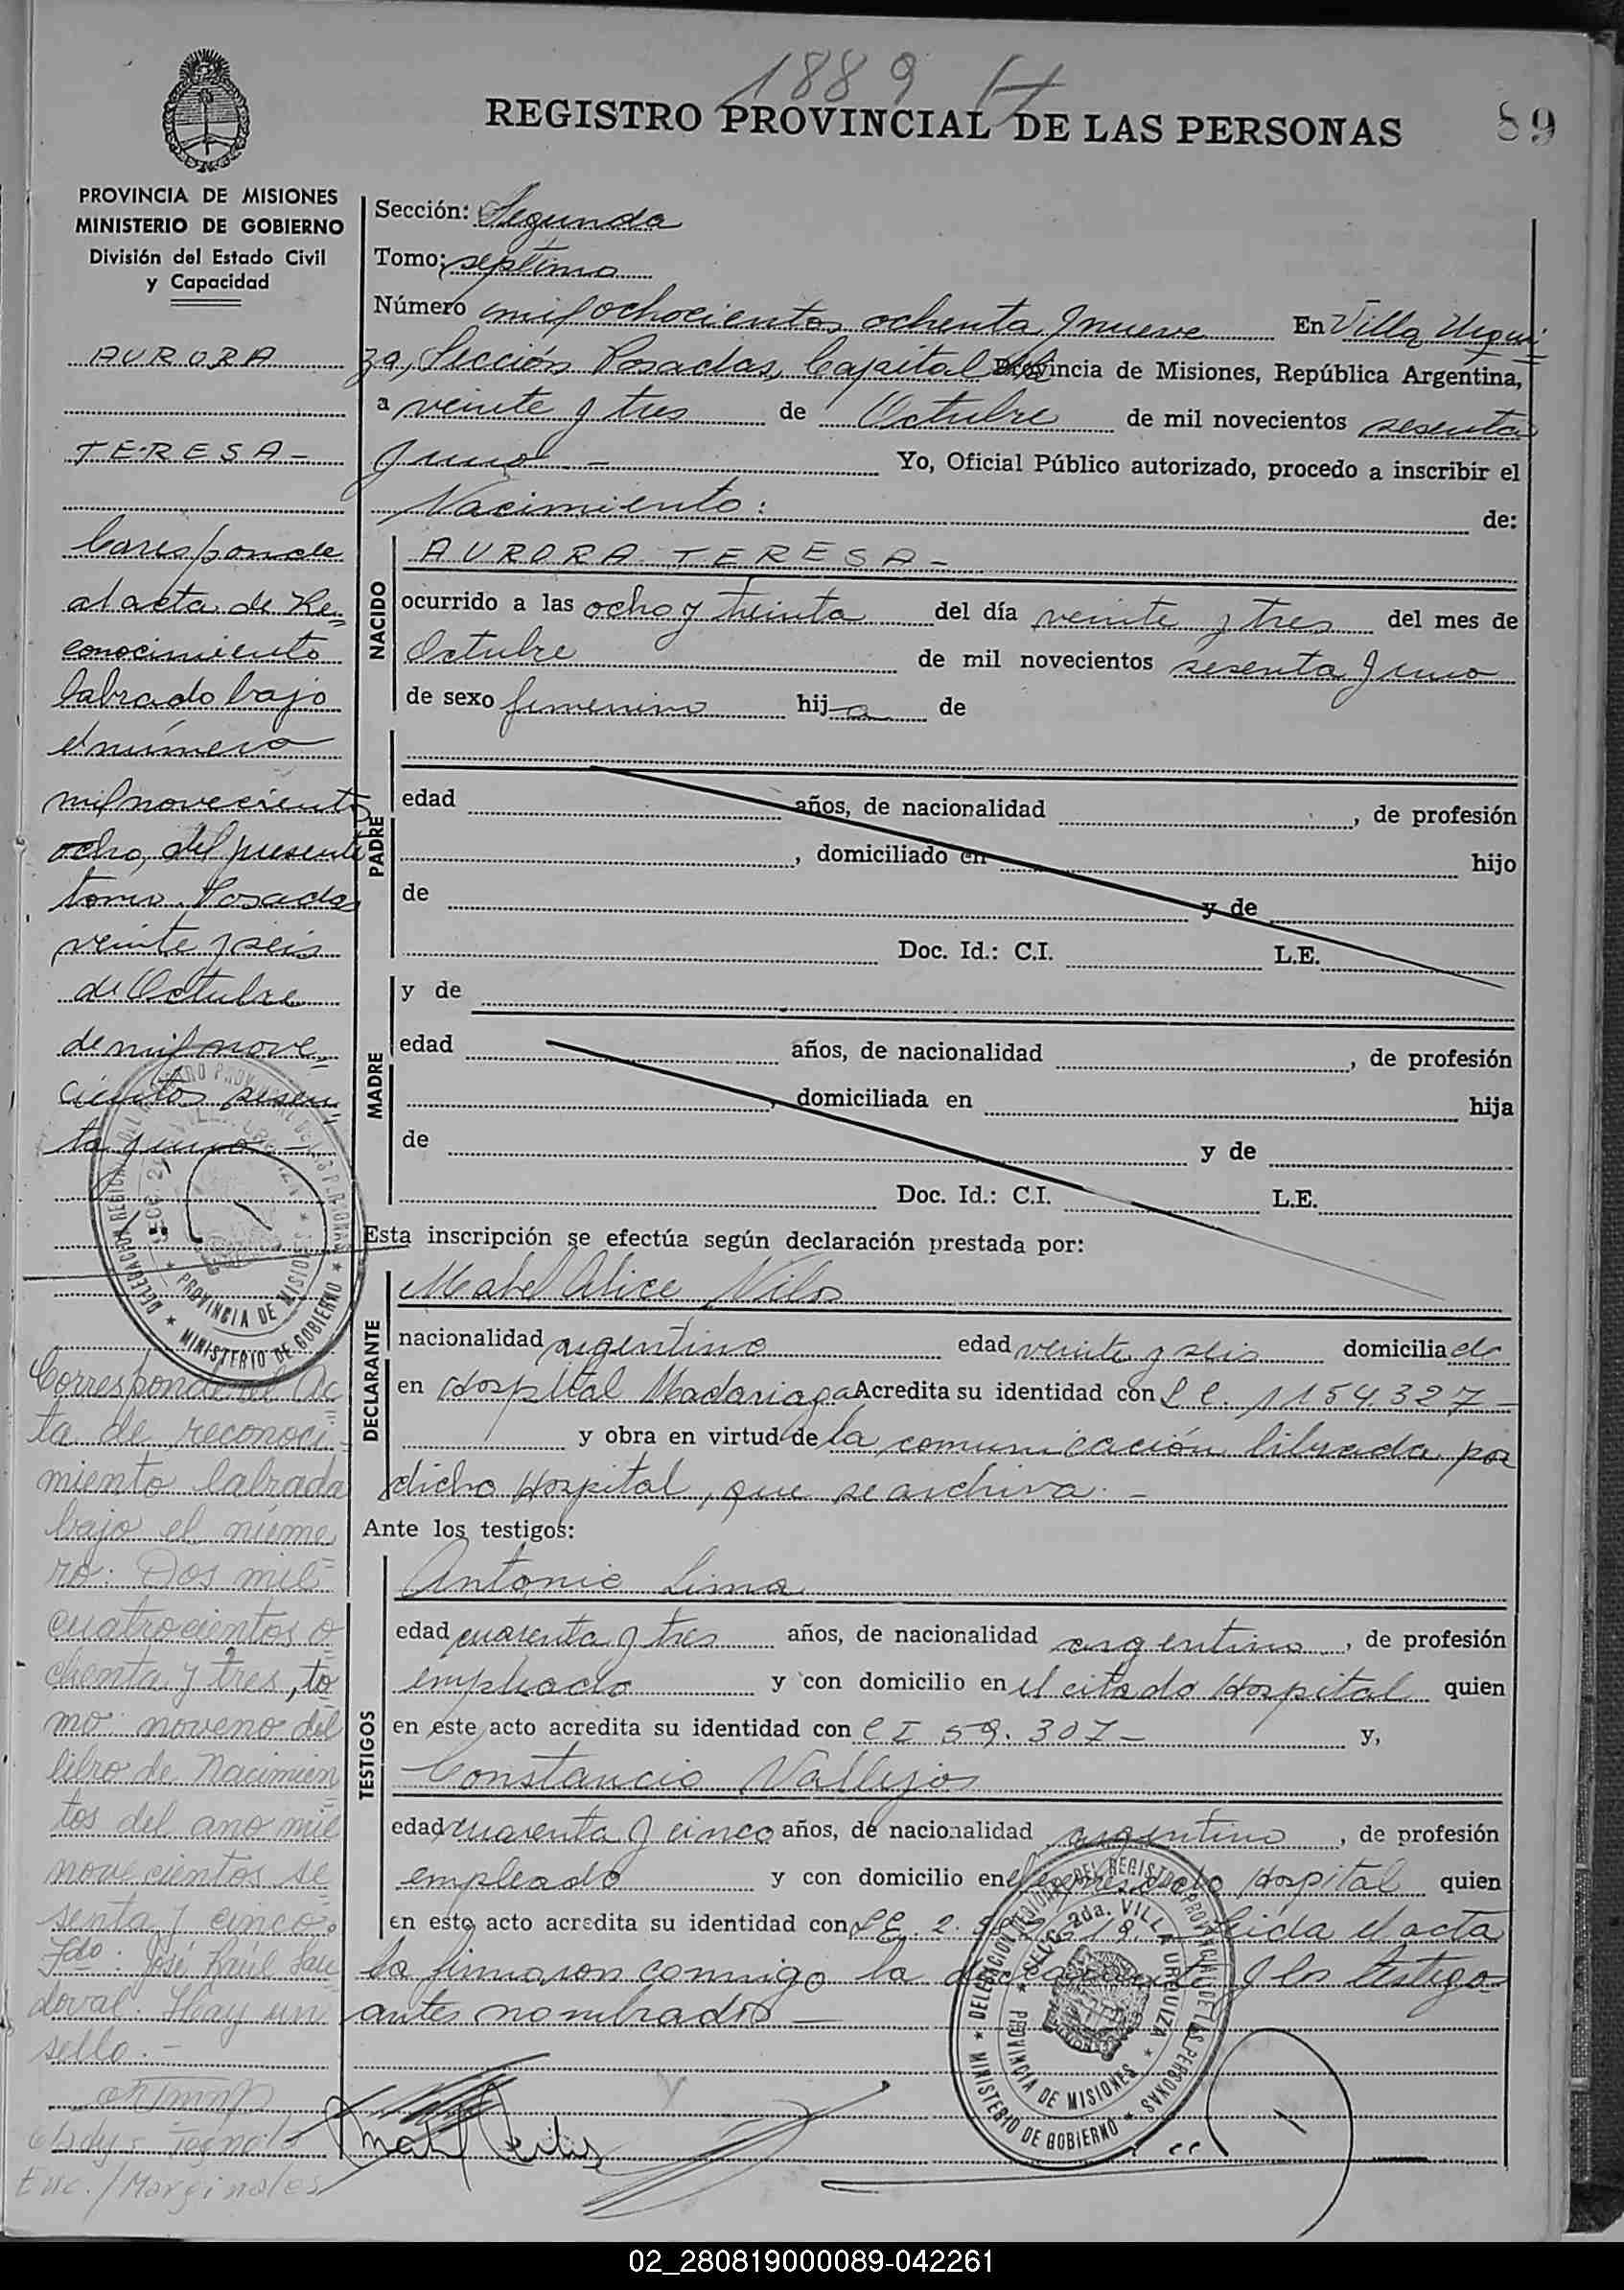 1889
REGISTRO PROVINCIAL DE LAS PERSONAS
89
PROVINCIA DE MISIONES
MINISTERIO DE GOBIERNO
División del Estado Civil
y Capacidad
AURORA
TERESA -
Corresponde
al acta de Re=
conocimiento
labrado bajo
el número
mil novecientos
ocho, del presente
tomo. Posadas
veinte y seis
de Octubre
de mil nove=
cientos sesen=
ta y uno -
Corresponde al Ac
ta de reconoci=
miento labrada
bajo el núme
ro: Dos mil
cuatrocientos o
chenta y tres, to
mo noveno del
libro de Nacimien
tos del ano mil
novecientos se
senta y cinco.
Fdo: José Raúl San
doval. Hay un
sello. -
Enc./Marginales
Sección: Segunda
Tomo: septimo
Número mil ochocientos ochenta y nueve En Villa Urqui=
za, Sección Posadas, Capital de la Provincia de Misiones, República Argentina,
a veinte y tres de Octubre de mil novecientos sesenta
y uno - Yo, Oficial Público autorizado, procedo a inscribir el
Nacimiento: de:
NACIDO
AURORA TERESA -
ocurrido a las ocho y treinta del día veinte y tres del mes de
Octubre de mil novecientos sesenta y uno
de sexo femenino hija de
PADRE
edad años, de nacionalidad , de profesión
, domiciliado en hijo
de y de
Doc. Id.: C.I. L.E.
MADRE
y de
edad años, de nacionalidad , de profesión
, domiciliada en hija
de y de
Doc. Id.: C.I. L.E.
Esta inscripción se efectúa según declaración prestada por:
DECLARANTE
Mabel Alice Nilos
nacionalidad argentina edad veinte y seis domiciliada
en Hospital Madariaga Acredita su identidad con L C. 1154.327 -
y obra en virtud de la comunicación librada por
dicho Hospital, que se archiva. -
Ante los testigos:
TESTIGOS
Antonio Lima
edad cuarenta y tres años, de nacionalidad argentino , de profesión
empleado y con domicilio en el citado Hospital quien
en este acto acredita su identidad con C I 59.307 - y,
Constancio Vallejos
edad cuarenta y cinco años, de nacionalidad argentino , de profesión
empleado y con domicilio en el Hospital quien
en este acto acredita su identidad con L E. 2. Leida el acta
la firmaron conmigo la declarante y los testigos
antes nombrados -
DELEGACION DEL REGISTRO PROVINCIAL DE LAS PERSONAS
SECC. 2da. VILLA URQUIZA
PROVINCIA DE MISIONES
MINISTERIO DE GOBIERNO
02_280819000089-042261